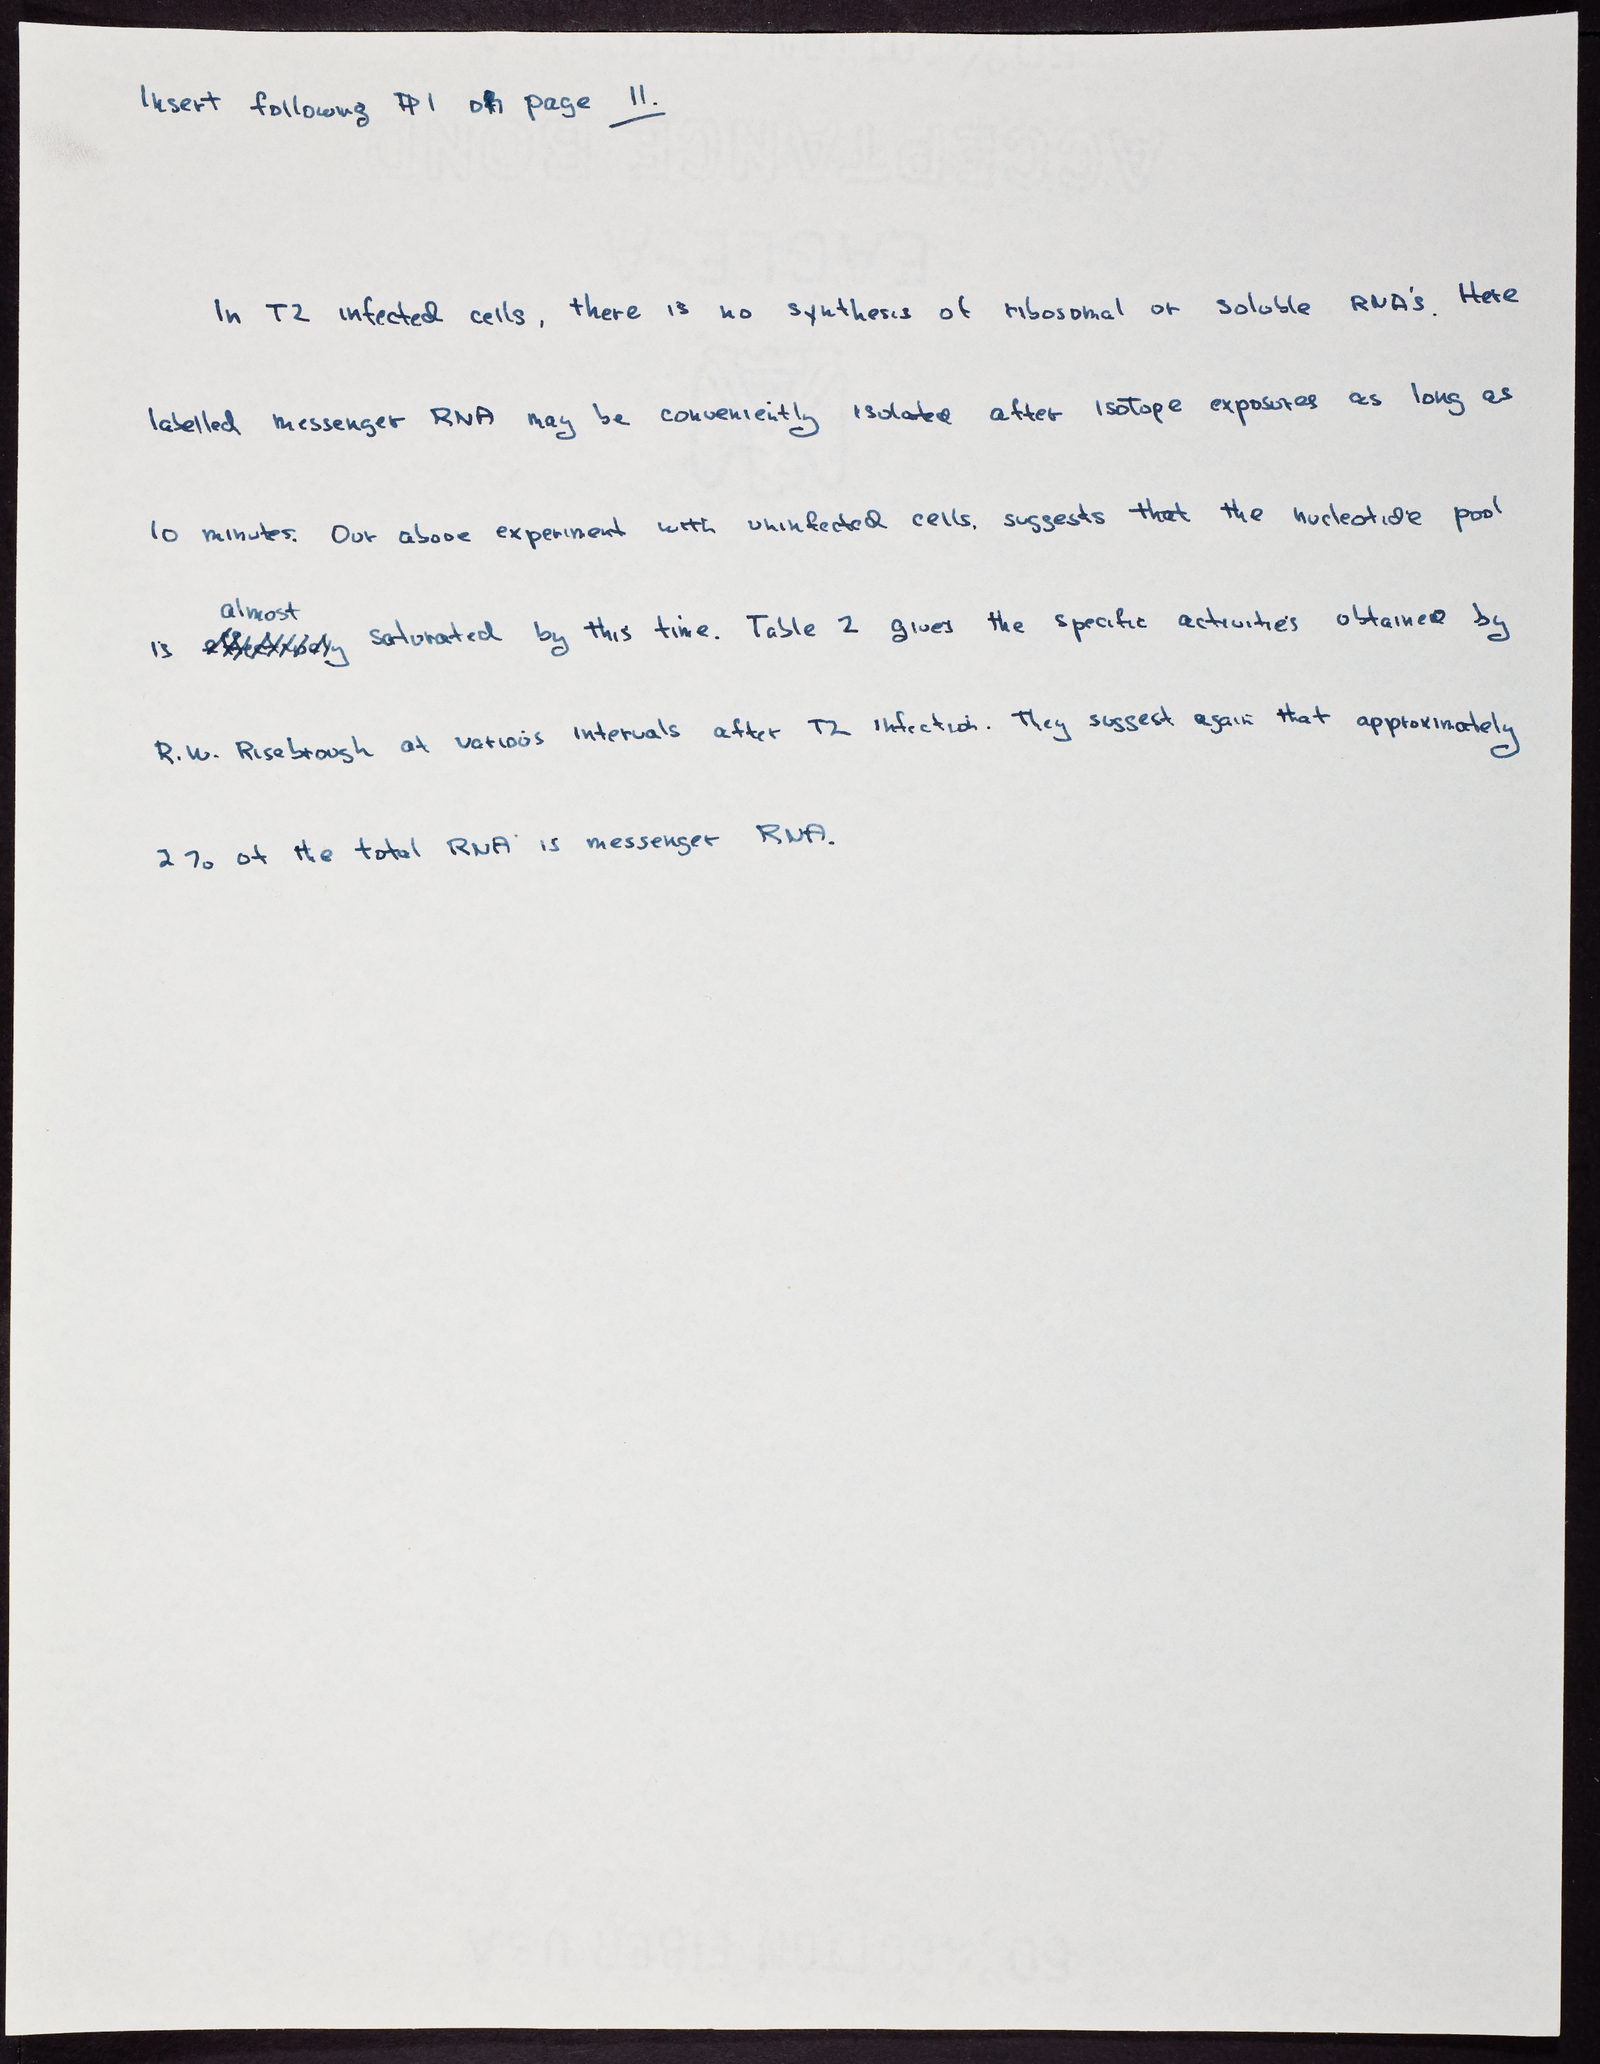 Insert following ¶ 1 on page 11.
In T2 infected cells, there is no synthesis of ribosomal or soluble RNA's. Here
labelled messenger RNA may be conveniently isolated after isotope exposures as long as
10 minutes. Our above experiment with uninfected cells, suggests that the nucleotide pool
almost
is saturated by this time. Table 2 gives the specific activities obtained by
R.W. Risebrough at various intervals after T2 infection. They suggest again that approximately
2% of the total RNA is messenger RNA.